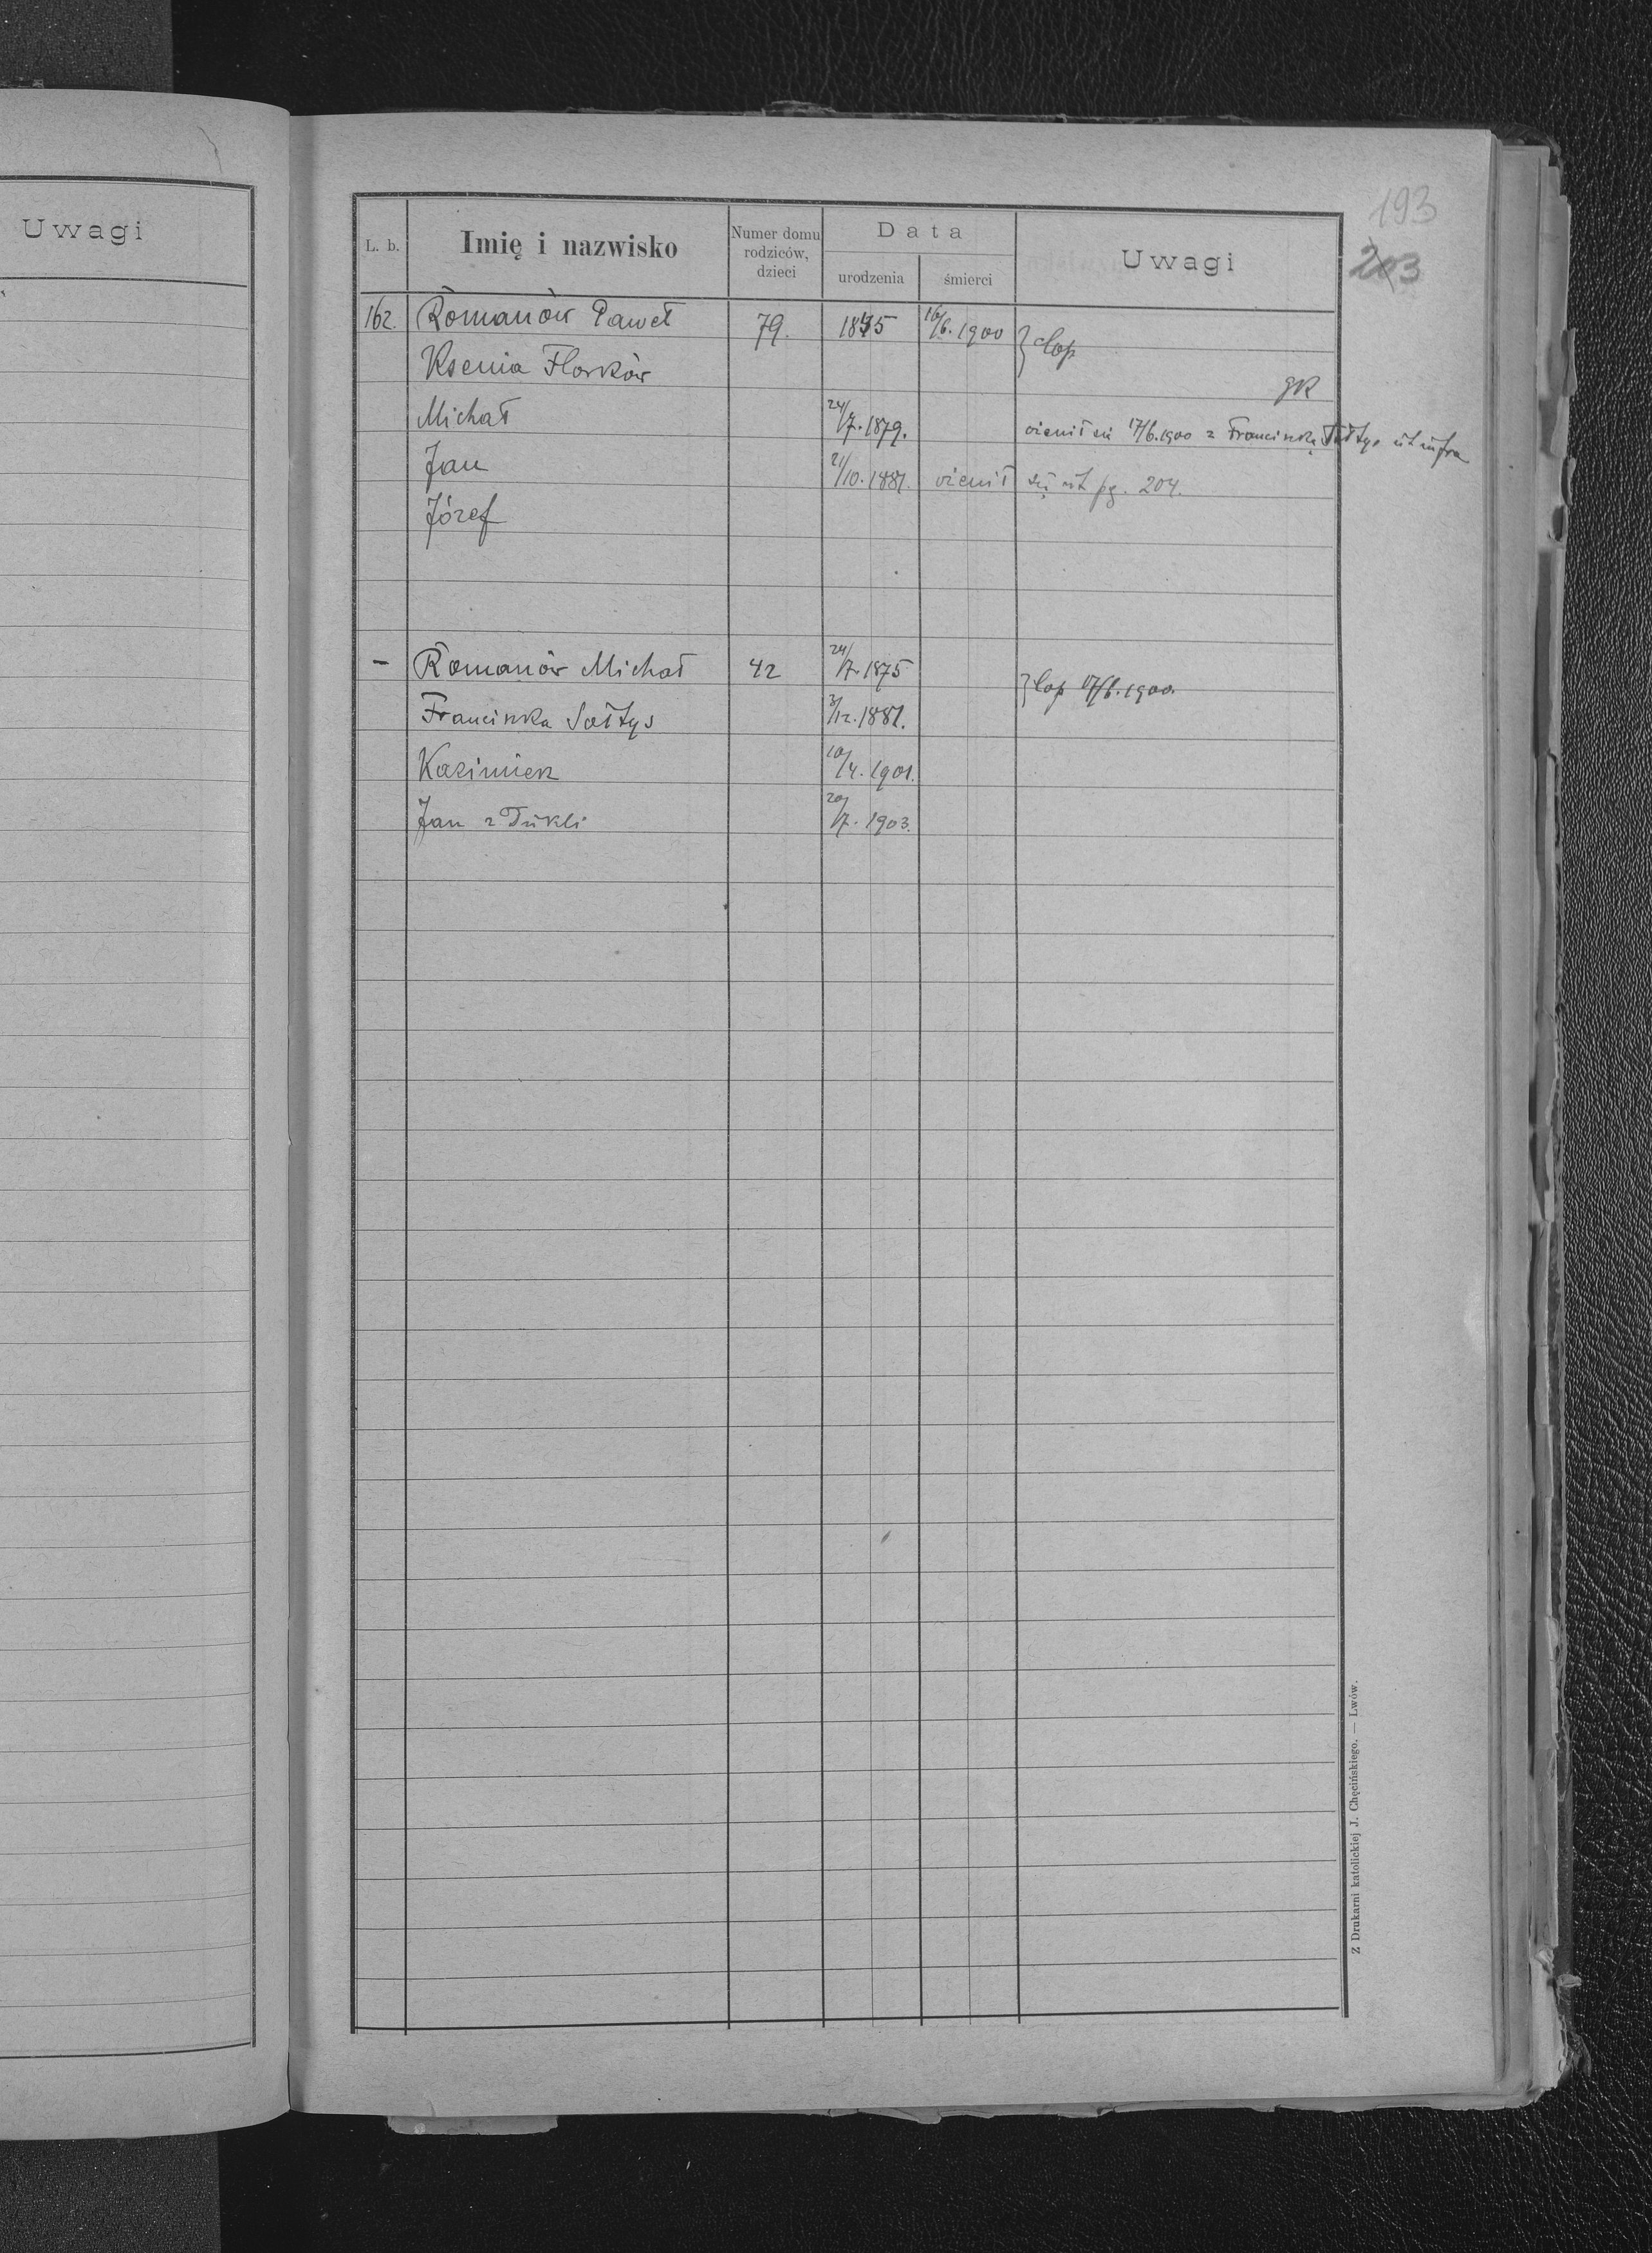 Uwagi
193
203
L. b. Imię i nazwisko Numer domu rodziców, dzieci Data urodzenia śmierci Uwagi
162. Romanów Paweł 79. 1845 16/6. 1900 } cop
Ksenia Florków gk
Michał 24/7. 1879. ożenił się 17/6. 1900 z Franciszką Sołtys ut infra
Jan 21/10. 1881. ożenił się ut pg. 204.
Józef
– Romanów Michał 42 24/7. 1875 } cop 17/6. 1900.
Franciszka Sołtys 3/12. 1881.
Kazimierz 10/4. 1901.
Jan z Dukli 20/7. 1903.
Z Drukarni katolickiej J. Chęcińskiego. — Lwów.